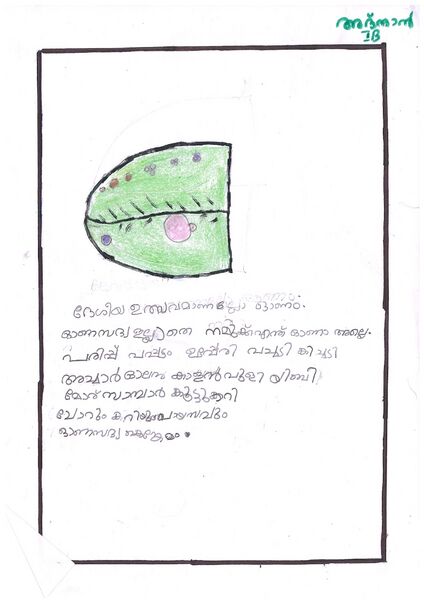 അദ്നാൻ
1B
ദേശീയ ഉത്സവമാണല്ലോ ഓണം.
ഓണസദ്യ ഇല്ലാതെ നമുക്ക് എന്ത് ഓണം അല്ലെ.
പരിപ്പ് പപ്പടം ഉപ്പേരി പച്ചടി കിച്ചടി
അച്ചാർ ഓലനും കാളൻ പുളി യിഞ്ചി
മോര് സാമ്പാർ കൂട്ടുകറി
ചോറും കറിയും പായസവും
ഓണസദ്യ കേങ്കേമം.